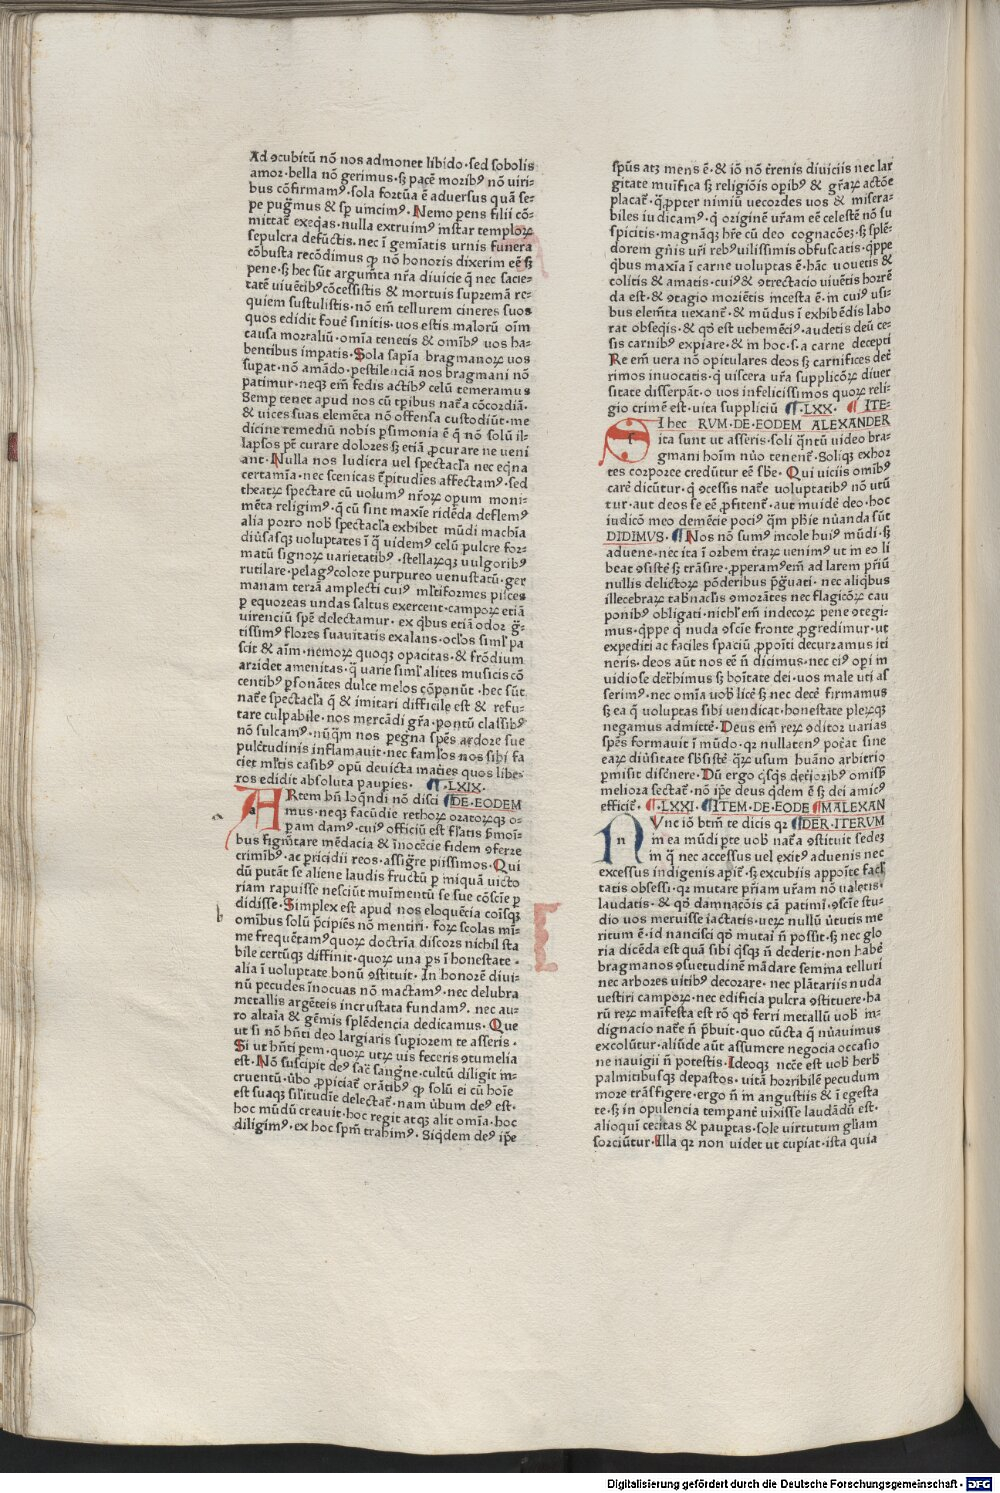 Ad ꝯcubitū nō nos admonet libido·sed sobolis
amor·bella nō gerimus·sꝫ pacē moribꝰ nō uiri-
bus cōfirmamꝰ·sola fortūa ē aduersus quā se-
pe pugm̄us & sꝑ uincimꝰ·Nemo pens filii cō-
mittat̄ exeq̄as·nulla extruimꝰ instar temploꝝ
sepulcra defūctis·nec ī gemīatis urnis funera
cōbusta recōdimus ꝙ nō honoris dixerim eē sꝫ
pene·sꝫ hec sūt argum̄ta nr̄a diuicie q̄ nec sacie-
tatē uiuētibꝰcōcessistis & mortuis supremā re-
quiem sustulistis·nō em̄ tellurem cineres suos
quos edidit fouē sinitis·uos estis malorū oīm
causa mortaliū·omīa tenetis & omībꝰ uos ha-
bentibus impatis·Sola sapīa bragmanoꝝ uos
suꝑat·nō amādo·pestilenciā nos bragmani nō
patimur·neqꝫ em̄ fedis actibꝰ celū temeramus
Semꝑ tenet apud nos cū tꝑibus nat̄a cōcordiā·
& uices suas elemēta nō offensa custodiūt·me
dicine remediū nobis ꝑsimonia ē q̄ nō solū il-
lapsos pēt curare dolores sꝫ etiā ꝓcurare ne ueni
ant·Nulla nos ludicra uel spectacl̄a nec eq̄na
certamīa·nec scenicas t̄pitudīes affectamꝰ·sed
theatꝝ spectare cū uolumꝰ nr̄oꝝ opum moni-
mēta religimꝰ·q̄ cū sint maxīe ridēda deflemꝰ
alia porro nob̄ spectacl̄a exhibet mūdi machīa
diūsasqꝫ uoluptates ī q̄ uidemꝰ celū pulcre for-
matū signoꝝ uarietatibꝰ·stellaꝝqꝫ uulgoribꝰ
rutilare·pelagꝰcolore purpureo uenustatū·ger
manam terrā amplecti cuiꝰ ml̄tiformes pisces
ꝑ equoreas undas saltus exercent·campoꝝ etiā
uirenciū spē delectamur·ex q̄bus etiā odor ḡ-
tissimꝰ flores suauitatis exalans·ocl̄os siml̄ pa
scit & aīm·nemoꝝ quoqꝫ opacitas·& frōdium
arridet amenitas·q̄ uarie siml̄ alites musicis cō
centibꝰ ꝑsonātes dulce melos cōponūt·hec sūt
nat̄e spectacl̄a q̄ & imitari difficile est & refu-
tare culpabile·nos mercādi gr̄a·pontū classibꝰ
nō sulcamꝰ·nūq̄m nos peregna spēs ardore sue
pulc̄tudinis inflamauit·nec faml̄os nos sibi fa
ciet ml̄tis casibꝰ opū deuicta macies quos libe-
ros edidit absoluta pauꝑies· ¶·LXIX·
ARtem bn̄ loq̄ndi nō disci ¶DE·EODEM
mus·neqꝫ facūdie rethoꝝ oratoꝝqꝫ o-
ꝑam damꝰ·cuiꝰ officiū est fl̄atis ꝑmoī-
bus figm̄tare mēdacia & īnocēcie fidem ꝯferre
crimībꝰ·ac ꝑricidii reos·assiḡre piissimos·Qui
dū putāt se aliene laudis fructū ꝑ iniquā uicto
riam rapuisse nesciūt muīmentū se sue cōscīe ꝑ
didisse·Simplex est apud nos eloquēcia coīsqꝫ
omībus solū p̄cipiēs nō mentiri·foꝝ scolas mī-
me frequētamꝰquoꝝ doctrīa discors nichil sta
bile certūqꝫ diffinit·quoꝝ una ꝑs ī honestate·
alia ī uoluptate bonū ꝯstituit·In honorē diui-
nū pecudes īnocuas nō mactamꝰ·nec delubra
metallis argēteis incrustata fundamꝰ·nec au-
ro altaīa & gēmis splēdencia dedicamus·Que
ut si nō hn̄ti deo largiaris suꝑiorem te asseris·
Si ut hn̄ti ꝑem·quoꝝ utꝝ uis feceris ꝯtumelia
est·Nō suscipit deꝰ sac̄ sangne·cultū diligit in-
cruentū·ūbo ꝓpiciat̄ orātibꝰ ꝙ solū ei cū hoīe
est suaqꝫ sil̄itudīe delectat̄·nam ūbum deꝰ est·
hoc mūdū creauit·hoc regit atqꝫ alit omīa·hoc
diligimꝰ·ex hoc spm̄ trahimꝰ·Siqdem deꝰ ip̄e
spūs atꝫ mens ē·& iō nō t̄renis diuiciis nec lar
gitate muīfica sꝫ religiōis oꝑibꝰ & gr̄aꝝ actōe
placat̄·q̄ꝓpter nimiū uecordes uos & misera-
biles iudicamꝰ·q̄ originē ur̄am eē celestē nō su
spicitis·magnāqꝫ hr̄e cū deo cognacōeꝫ·sꝫ splē-
dorem gn̄is ur̄i rebꝰuilissimis obfuscatis·q̄ppe
q̄bus maxīa ī carne uoluptas ē·hāc uouetis &
colitis & amatis·cuiꝰ & ꝯtrectacio uiuētis horrē
da est·& ꝯtagio moriētis incesta ē·in cuiꝰ usi-
bus elem̄ta uexant̄·& mūdus ī exhibēdis labo
rat obseqis·& qd̄ est uehemēciꝰ·audetis deū ce-
sis carnibꝰ expiare·& in hoc·s·a carne decepti
Re em̄ uera nō opitulares deos sꝫ carnifices det̄
rimos inuocatis·q̄ uiscera ur̄a suppliciōꝝ diuer
sitate disserpāt·o uos infelicissimos quoꝝ reli-
gio crimē est·uita suppliciū ¶·LXX· ¶ ITE-
SI hec RVM·DE·EODEM ALEXANDER
ita sunt ut asseris·soli q̄ntū uideo bra-
gmani hoīm nūo tenent̄·Soliqꝫ exhor
tes corporee credūtur eē sb̄e·Qui uiciis omībꝰ
carē dicūtur·q̄ ꝯcessis nat̄e uoluptatibꝰ nō utū
tur·aut deos se eē ꝓfitent̄·aut muidē deo·hoc
iudicō meo demēcie pociꝰ q̄m ph̄ie nūanda sūt
DIDIMVS·¶Nos nō sumꝰ incole huiꝰ mūdi·sꝫ
aduene·nec ita ī orbem t̄raꝝ uenimꝰ ut in eo li
beat ꝯsistē sꝫ trāsire·ꝓperamꝰem̄ ad larem pr̄iū
nullis delictoꝝ pōderibus p̄ḡuati·nec aliq̄bus
illecebraꝝ tab̄naclis ꝯmorātes nec flagicōꝝ cau
ponibꝰ obligati·nichl̄ em̄ indecoꝝ pene ꝯtegi-
mus·q̄ppe q̄ nuda ꝯscīe fronte ꝓgredimur·ut
expediti ac faciles spaciū ꝓpoīti decurramus iti
neris·deos aūt nos eē n̄ dicimus·nec eiꝰ oꝑi in
uidiose det̄himus sꝫ boītate dei·uos male uti af
serimꝰ·nec omīa uob̄ licē sꝫ nec decē firmamus
sꝫ ea q̄ uoluptas sibi uendicat·honestate pleꝝqꝫ
negamus admittē·Deus em̄ reꝝ ꝯditor uarias
spēs formauit ī mūdo·qꝛ nullatenꝰ poc̄at sine
eaꝝ diūsitate sb̄sistē q̄ꝝ usum huāno arbitrio
ꝑmisit disc̄nere·Dū ergo q̄sqꝫ det̄ioribꝰ omissꝫ
meliora sectat̄·nō ip̄e deus q̄dem ē sꝫ dei amicꝰ
efficit̄·¶·LXXI·¶ITEM·DE·EODE ¶MALEXAN
NVnc iō btm̄ te dicis qꝛ ¶DER·ITERVM
in ea mūdi ꝑte uob̄ nat̄a ꝯstituit sedeꝫ
in q̄ nec accessus uel exitꝰ aduenis nec
excessus indigenis aꝑit̄·sꝫ excubiis appoīte facl̄
tatis obsessi·qꝛ mutare pr̄iam ur̄am nō ualetis·
laudatis·& qd̄ damnacōis cā patiminī·ꝯscīe stu-
dio uos meruisse iactatis·ueꝝ nullū ūtutis me
ritum ē·id nancisci qd̄ mutaī n̄ possit·sꝫ nec glo
ria dicēda est quā sibi q̄sqꝫ n̄ dederit·non habē
bragmanos ꝯsuetudinē mādare semina telluri
nec arbores uitibꝰ decorare·nec plātariis nuda
uestiri campoꝝ·nec edificia pulcra ꝯstituere·ha
rū reꝝ maīfesta est rō qd̄ ferri metallū uob̄ in-
dignacio nat̄e n̄ p̄buit·quo cūcta q̄ nūauimus
excolūtur·aliūde aūt assumere negocia occasio
ne nauigii n̄ potestis·Ideoqꝫ nc̄ce est uob̄ herb̄
palmitibusqꝫ depastos·uitā horribilē pecudum
more trāsfigere·ergo n̄ in angustiis & ī egesta
te·sꝫ in opulencia temꝑant̄ uixisse laudādū est·
alioquī cecitas & pauꝑtas·sole uirtutum gl̄iam
sorciūtur·Illa qꝛ non uidet ut cupiat·ista quia
a
b
r
n
Digitalisierung gefördert durch die Deutsche Forschungsgemeinschaft · DFG